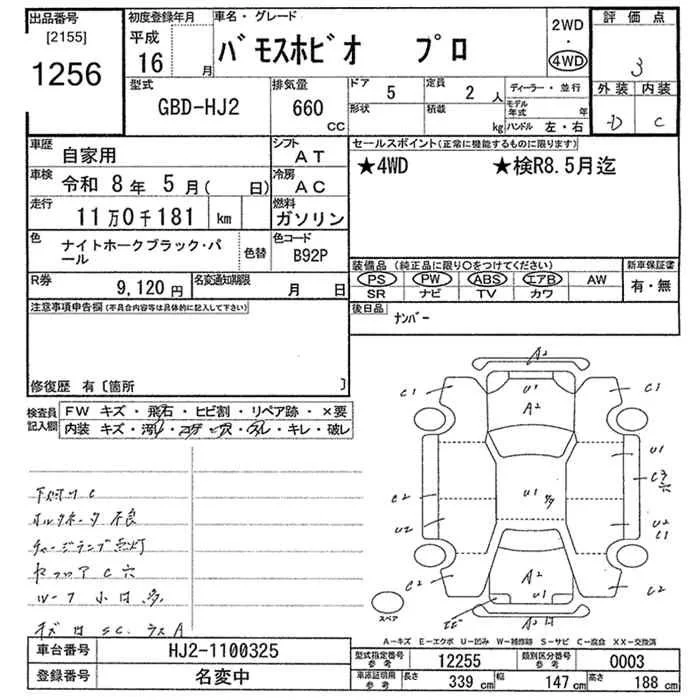 出品番号
[2155]
1256
初度登録年月
平成
16
月
車名・グレード
バモスホビオ プロ
2WD
・
4WD
評価点
3
型式
GBD-HJ2
排気量
660
cc
ドア
5
定員
2
人
形状
積載
kg
ディーラー・並行
モデル年式
年
ハンドル 左・右
外装
内装
D
C
車歴
自家用
シフト
AT
車検
令和 8年 5月( 日)
冷房
AC
走行
11万0千181 km
燃料
ガソリン
色
ナイトホークブラック・パール
色替
色コード
B92P
R券
9,120円
名変通知期限
月 日
セールスポイント(正常に機能するものに限ります)
★4WD ★検R8.5月迄
装備品(純正品に限り○をつけてください)
PS PW ABS エアB AW
SR ナビ TV カワ
新車保証書
有・無
後日品
ナンバー
注意事項申告欄(不具合内容等は具体的に記入して下さい)
修復歴 有〔箇所 〕
検査員記入欄
FW キズ・飛石・ヒビ割・リペア跡・×要
内装 キズ・汚れ・コゲ・穴・スレ・キレ・破レ
オルタネータ 不良
チャージランプ点灯
マフラーC穴
A2
C1
U1
A2
C1
U1
C3
穴
C2
U1
U2
U2
C1
A2
C2
U1
C2
スペア
A-キズ E-エクボ U-凹み W-補修跡 S-サビ C-腐食 XX-交換済
車台番号
HJ2-1100325
登録番号
名変中
型式指定番号
参考
12255
類別区分番号
参考
0003
車庫証明用
参考
長さ 339 cm 幅 147 cm 高さ 188 cm